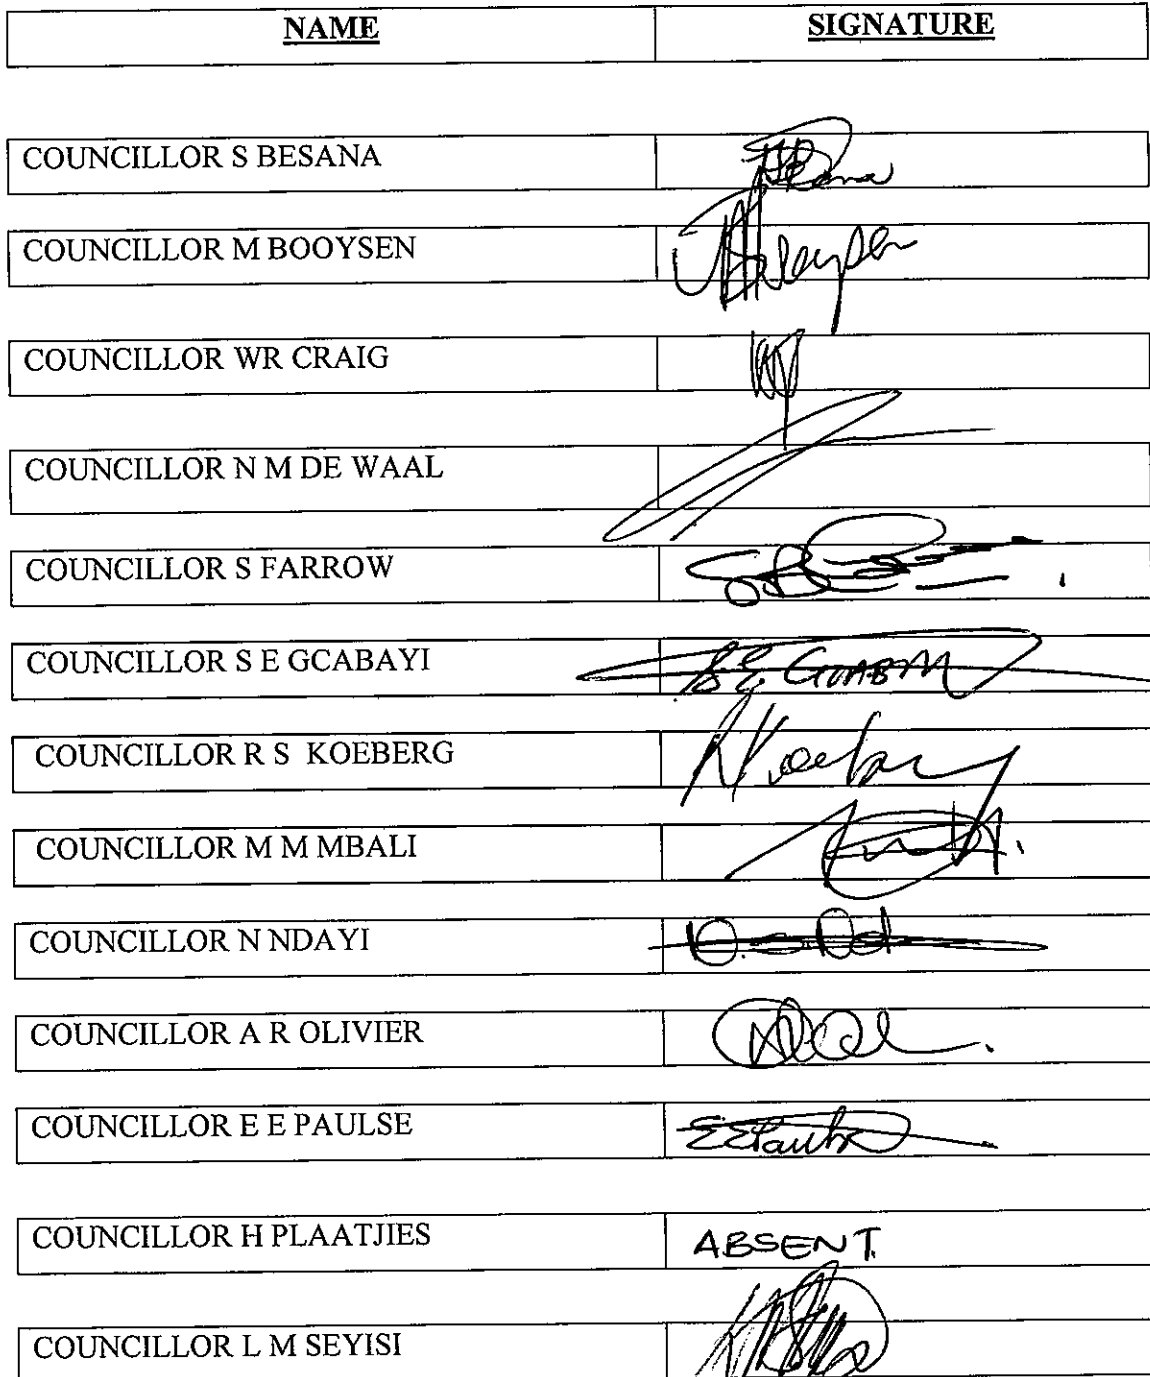 NAME SIGNATURE
COUNCILLOR S BESANA
COUNCILLOR M BOOYSEN
COUNCILLOR WR CRAIG
COUNCILLOR N M DE WAAL
COUNCILLOR S FARROW
COUNCILLOR S E GCABAYI
COUNCILLOR R S KOEBERG
COUNCILLOR M M MBALI
COUNCILLOR N NDAYI
COUNCILLOR A R OLIVIER
COUNCILLOR E E PAULSE
COUNCILLOR H PLAATJIES ABSENT.
COUNCILLOR L M SEYISI